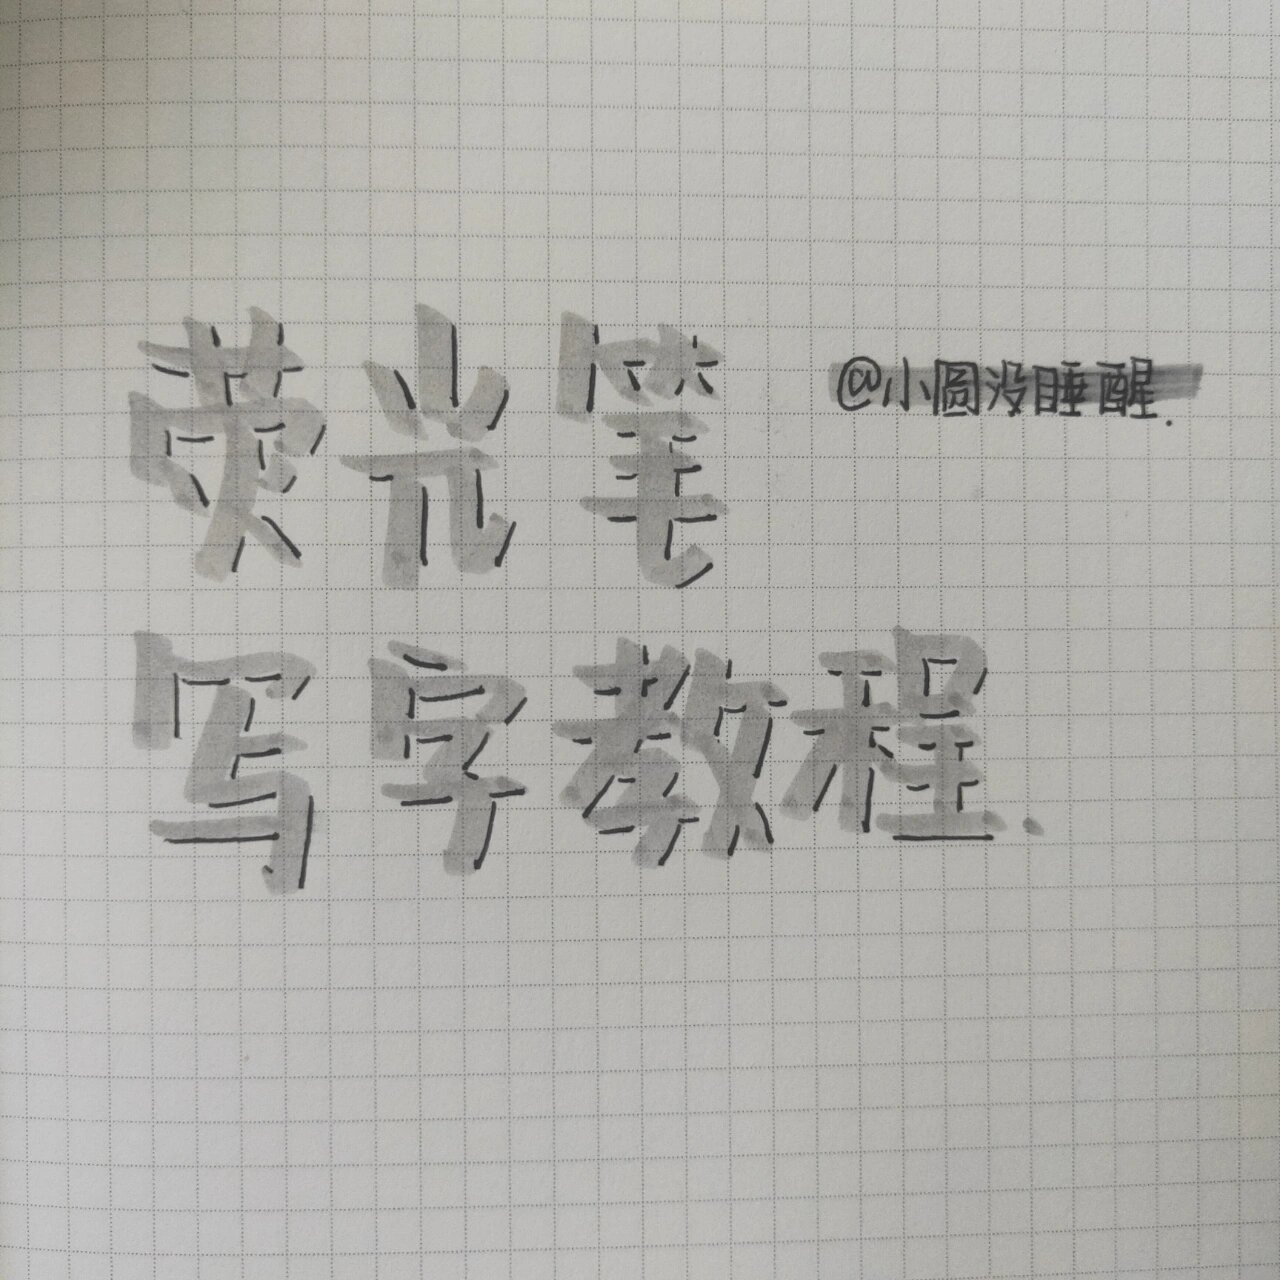 荧光笔
@小圆没睡醒.
写字教程.